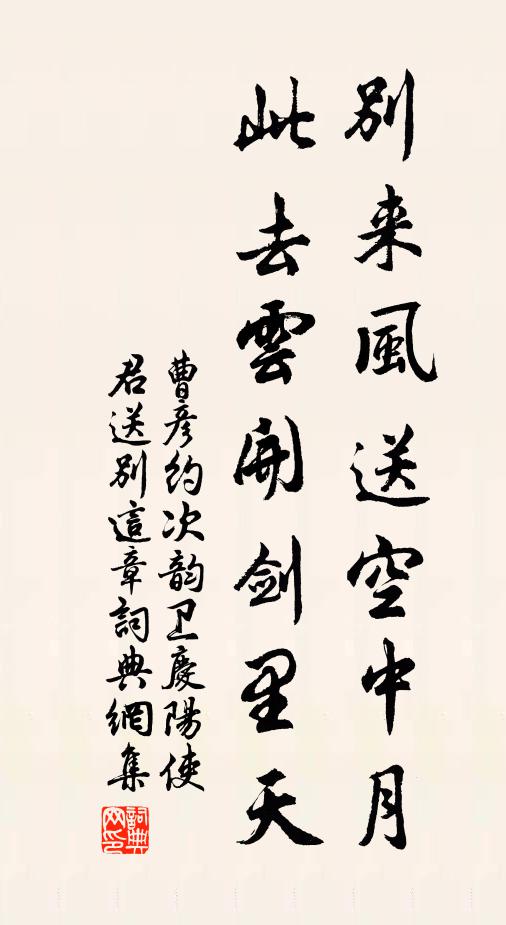 別来風送空中月
此去雲開剑里天
曹彦約次韵卫慶陽使
君送別這章詞典網集
詞典網印